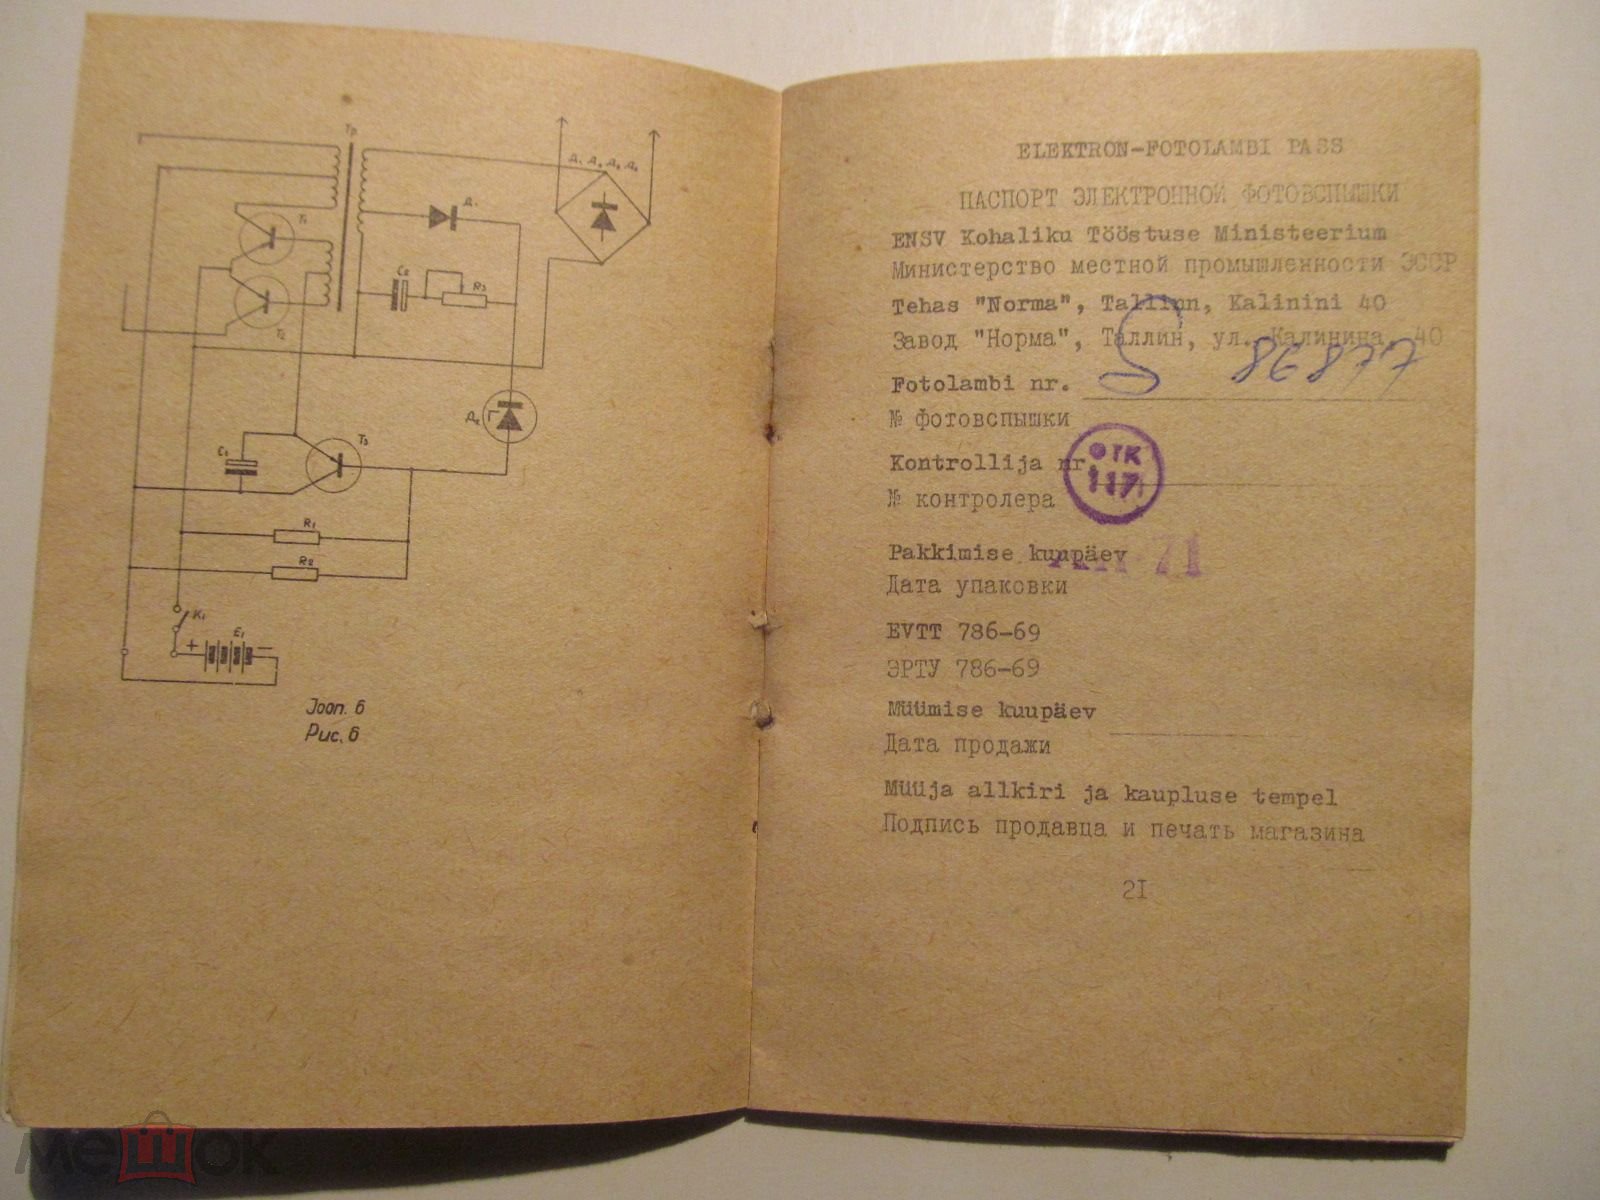 Тр
Т₁
Т₂
Д₁
C₂
R₃
Т₃
C₁
R₁
R₂
K₁
+ E₁ −
Joon. 6
Рис. 6
ELEKTRON-FOTOLAMBI PASS
ПАСПОРТ ЭЛЕКТРОННОЙ ФОТОВСПЫШКИ
ENSV Kohaliku Tööstuse Ministeerium
Министерство местной промышленности ЭССР
Tehas "Norma", Tallinn, Kalinini 40
Завод "Норма", Таллин, ул. Калинина, 40
Fotolambi nr. S 86877
№ фотовспышки
Kontrollija nr
ОТК
117
№ контролера
Pakkimise kuupäev
71
Дата упаковки
EVTT 786-69
ЭРТУ 786-69
Müümise kuupäev
Дата продажи
Müüja allkiri ja kaupluse tempel
Подпись продавца и печать магазина
2I
мешок